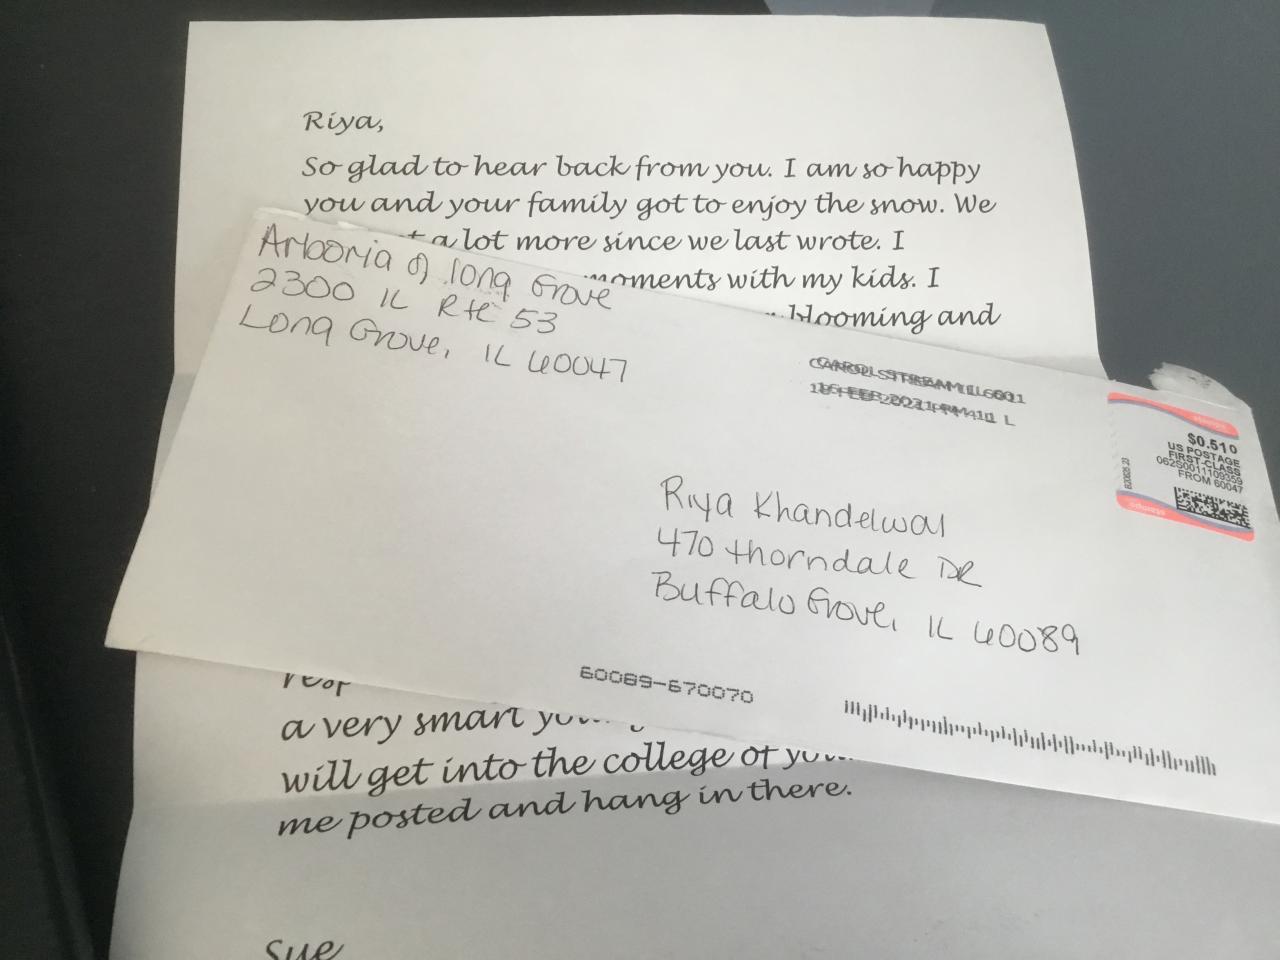 Riya,
So glad to hear back from you. I am so happy
you and your family got to enjoy the snow. We
a lot more since we last wrote. I
moments with my kids. I
blooming and
Arboria of Long Grove
2300 IL Rte 53
Long Grove, IL 60047
CAROL STREAM IL 601
$0.510
US POSTAGE
FIRST-CLASS
062S0011109359
FROM 60047
Riya Khandelwal
470 Thorndale DR
Buffalo Grove, IL 60089
60089-670070
a very smart
will get into the college of
me posted and hang in there.
Sue